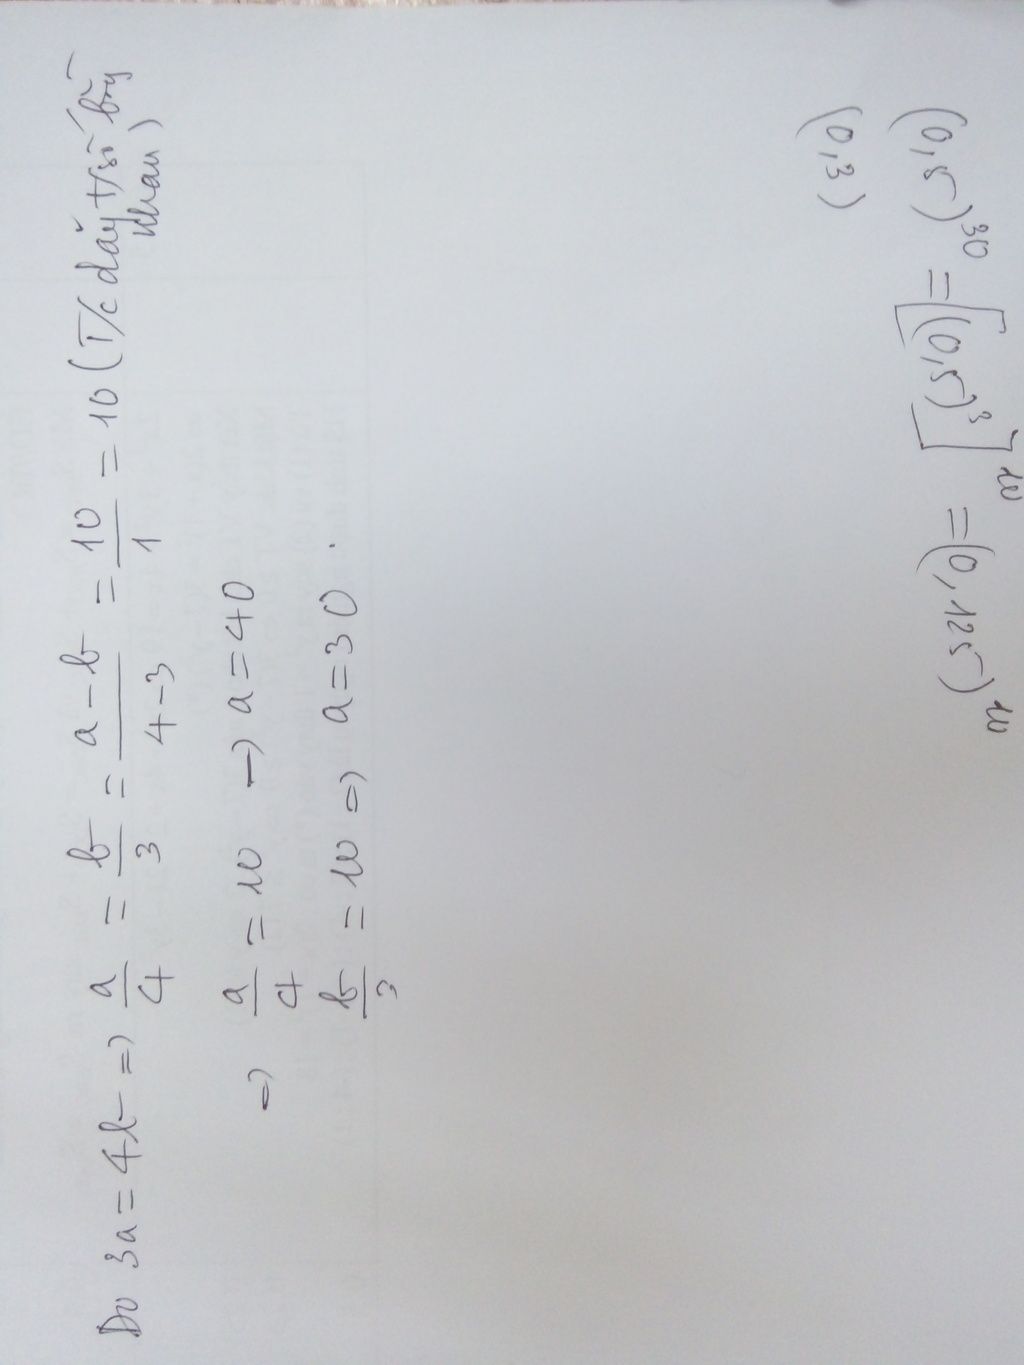 Do 3a = 4b => a/4 = b/3 = a - b / 4 - 3 = 10/1 = 10 (T/c dãy t/số bằng nhau)
=> a/4 = 10 -> a = 40
b/3 = 10 => a = 30.
(0,5)^30 = [(0,5)^3]^10 = (0,125)^10
(0,3)